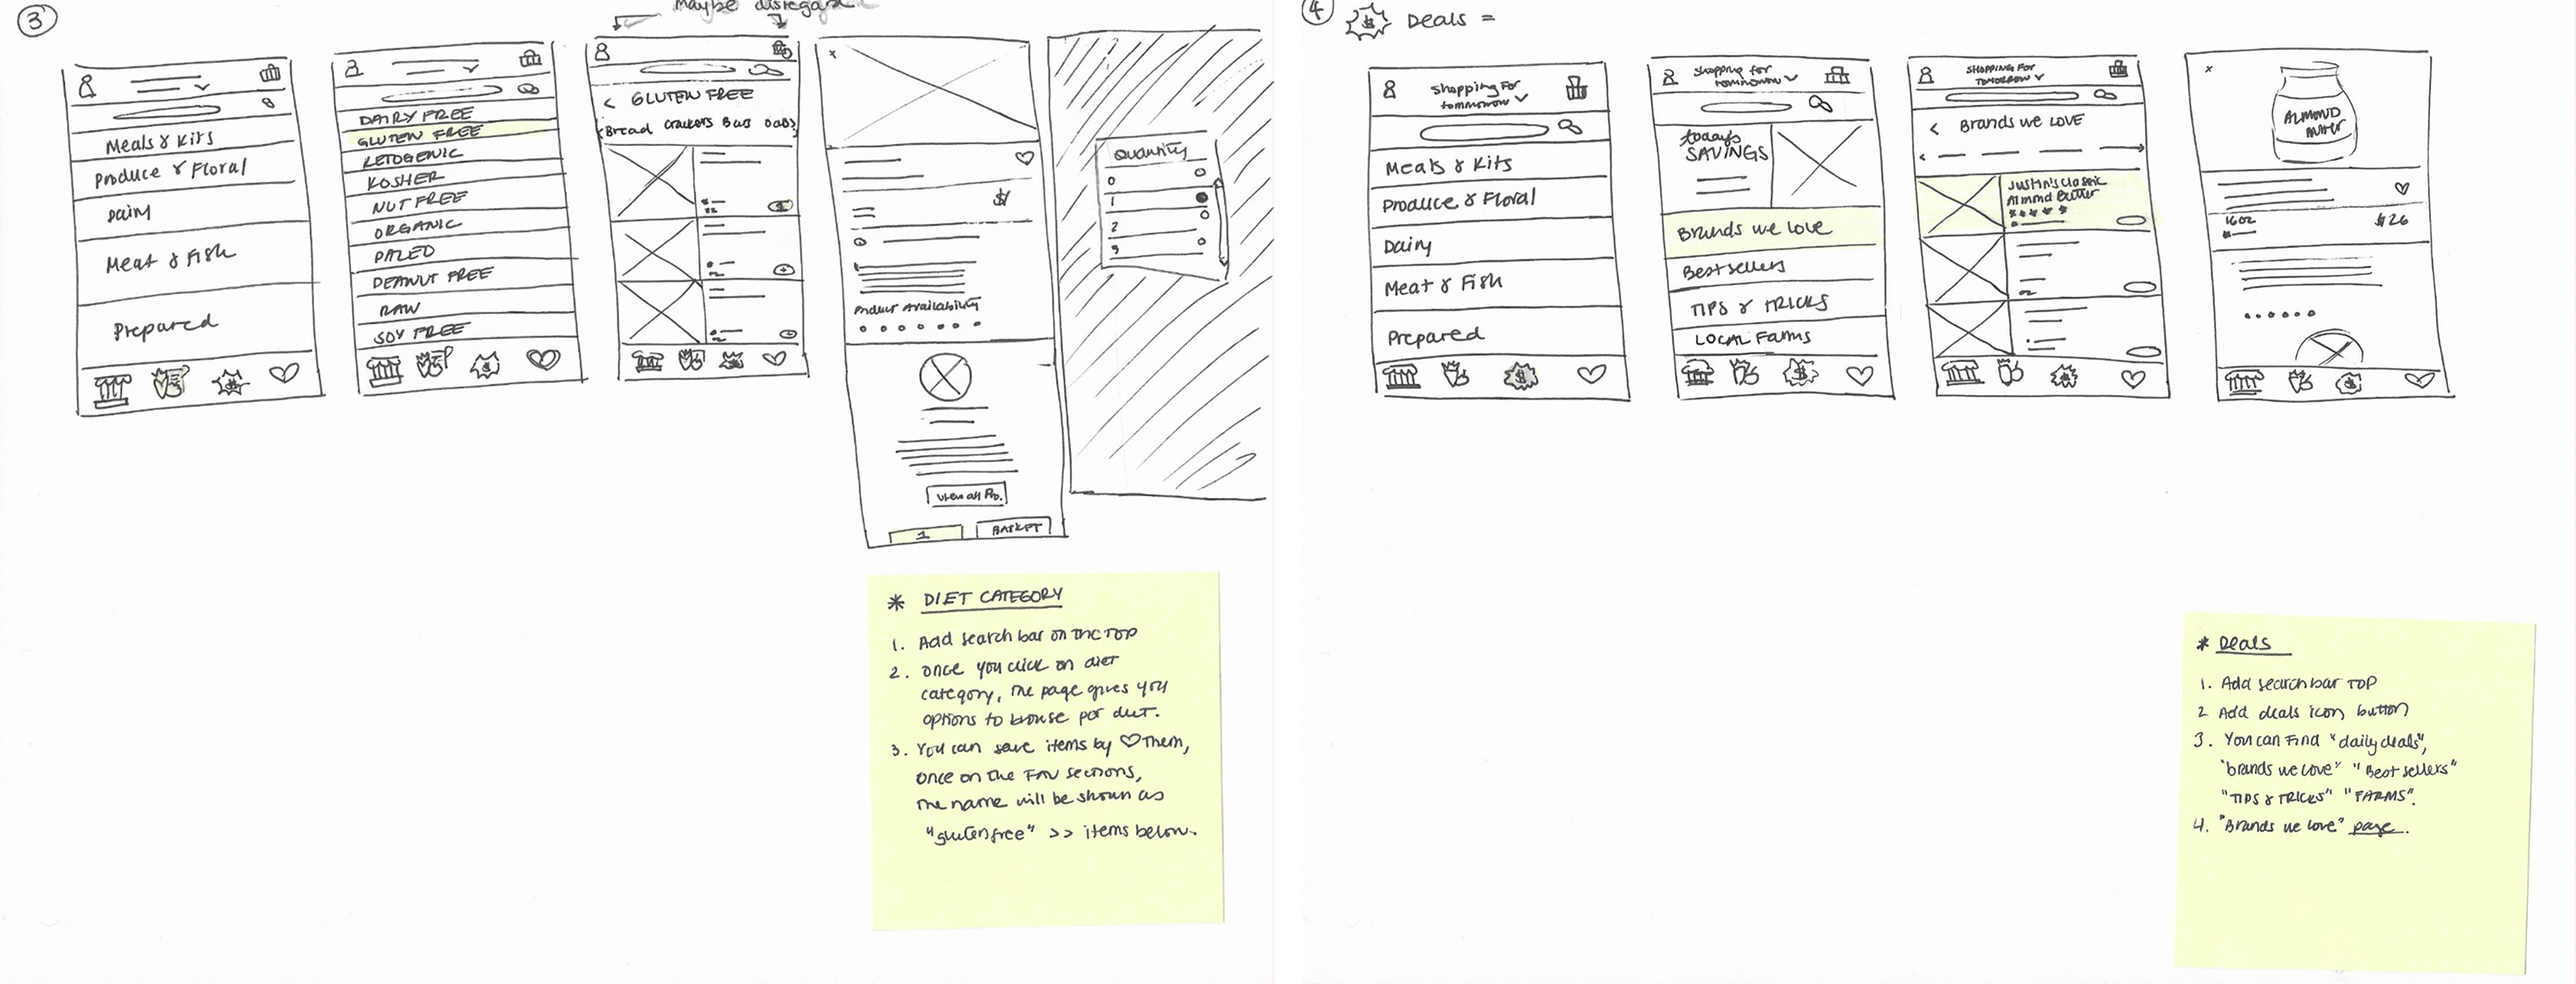 3
Maybe disregard
Meals & Kits
Produce & Floral
Dairy
Meat & Fish
Prepared
DAIRY FREE
GLUTEN FREE
KETOGENIC
KOSHER
NUT FREE
ORGANIC
PALEO
PEANUT FREE
RAW
SOY FREE
< GLUTEN FREE
Bread Crackers Bars
1
$
Product Availability
View all Pro.
1
BASKET
Quantity
0
1
2
3
* DIET CATEGORY
1. Add search bar on the TOP
2. once you click on diet
category, the page gives you
options to browse per diet.
3. You can save items by ♡ Them,
once on the FAV sections,
the name will be shown as
"gluten free" >> items below.
4
$ Deals =
Shopping For
tommorow
Meals & Kits
Produce & Floral
Dairy
Meat & Fish
Prepared
$
Shopping for
tommorow
todays
SAVINGS
Brands we love
Best sellers
TIPS & TRICKS
LOCAL Farms
$
SHOPPING FOR
TOMORROW
< Brands we LOVE
Justin's Classic
Almond Butter
$
x
ALMOND
16 oz
$26
$
* Deals
1. Add search bar TOP
2 Add deals icon button
3. You can Find "daily deals",
"brands we love" "Best sellers"
"TIPS & TRICKS" "FARMS".
4. "Brands we love" page.